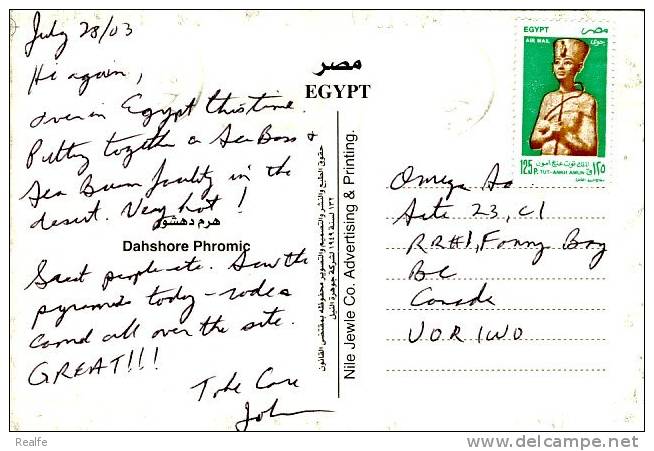 July 28/03
Hi again,
over in Egypt this time.
Putting together a Sea Bass &
Sea Bream facility in the
desert. Very hot!
هرم دهشور
Dahshore Phromic
people etc. Saw the
pyramids today - rode a
camel all over the site.
GREAT!!!
Take Care
John
مصر
EGYPT
حقوق الطبع والنشر والتصميم والتصوير محفوظه بمقتضى القانون
١٣٢ لسنة ١٩٤٩ لشركة جوهرة النيل
Nile Jewle Co. Advertising & Printing.
EGYPT مصر
AIR MAIL جوى
توت عنخ آمون
125 P. TUT-ANKH AMUN ١٢٥
Omega
Site 23, C1
RR#1, Fanny Bay
BC
Canada
V0R 1W0
Realfe
www.delcampe.net